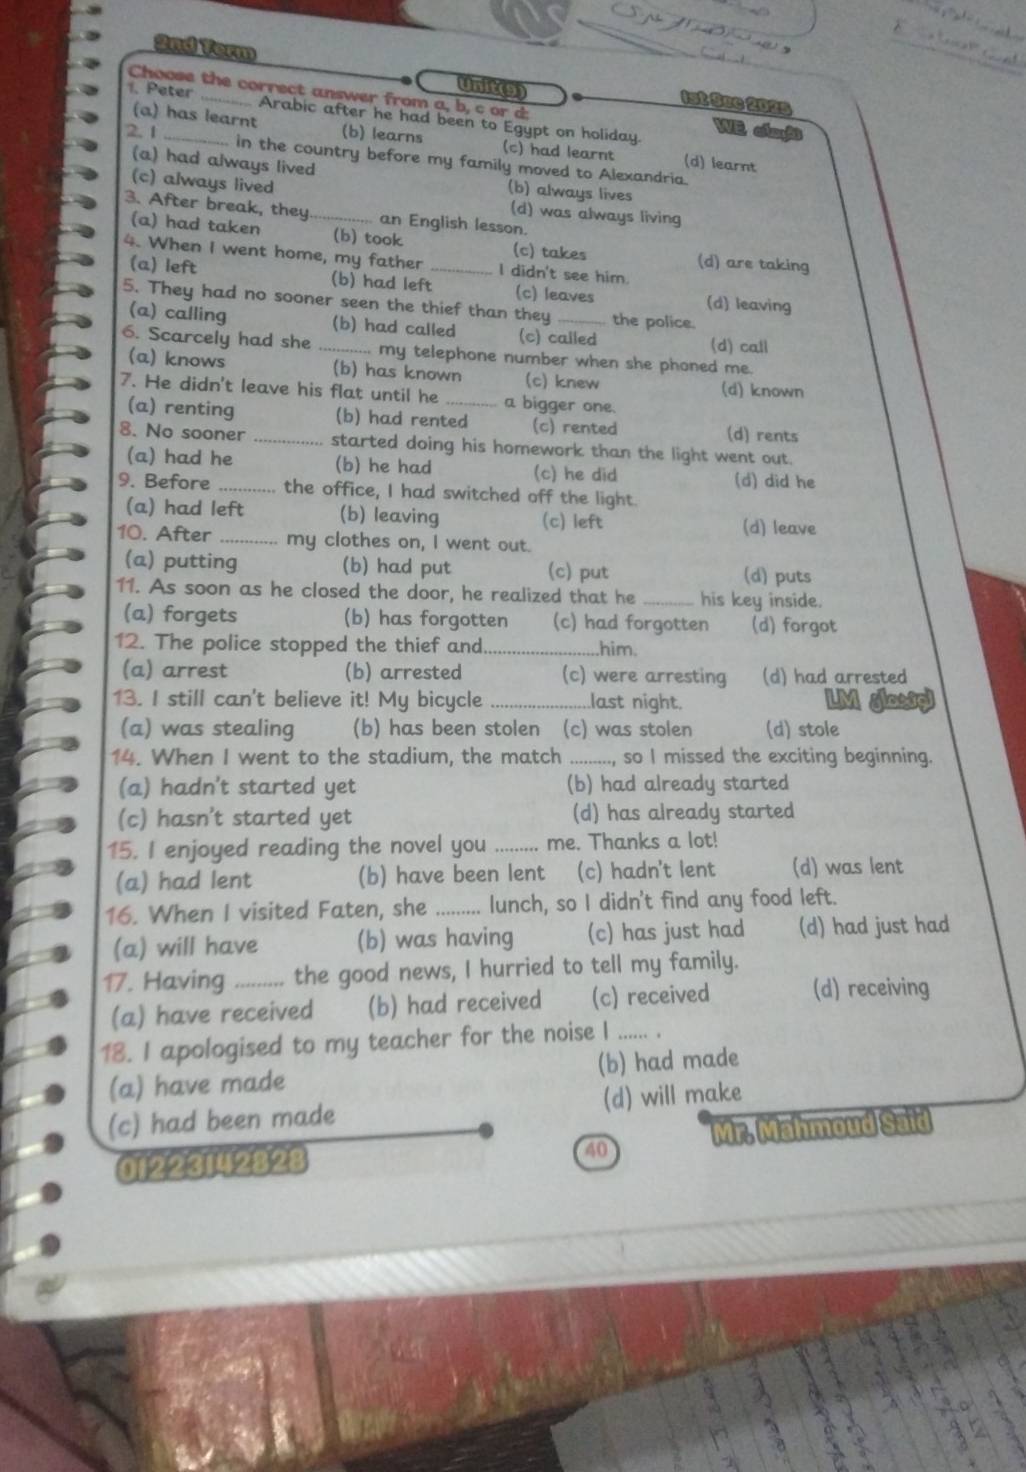 2nd Term
Unit(9)
1st Sec 2025
Choose the correct answer from a, b, c or d:
WE
1. Peter ........... Arabic after he had been to Egypt on holiday.
(a) has learnt (b) learns (c) had learnt (d) learnt
2. I ............... in the country before my family moved to Alexandria.
(a) had always lived (b) always lives
(c) always lived (d) was always living
3. After break, they.............. an English lesson.
(a) had taken (b) took (c) takes (d) are taking
4. When I went home, my father .............. I didn't see him.
(a) left (b) had left (c) leaves (d) leaving
5. They had no sooner seen the thief than they .......... the police.
(a) calling (b) had called (c) called (d) call
6. Scarcely had she ............ my telephone number when she phoned me.
(a) knows (b) has known (c) knew (d) known
7. He didn't leave his flat until he ........... a bigger one.
(a) renting (b) had rented (c) rented (d) rents
8. No sooner ............... started doing his homework than the light went out.
(a) had he (b) he had (c) he did (d) did he
9. Before ............ the office, I had switched off the light.
(a) had left (b) leaving (c) left (d) leave
10. After ............ my clothes on, I went out.
(a) putting (b) had put (c) put (d) puts
11. As soon as he closed the door, he realized that he ........... his key inside.
(a) forgets (b) has forgotten (c) had forgotten (d) forgot
12. The police stopped the thief and.........................him.
(a) arrest (b) arrested (c) were arresting (d) had arrested
13. I still can't believe it! My bicycle .....................last night.
LM
(a) was stealing (b) has been stolen (c) was stolen (d) stole
14. When I went to the stadium, the match ........., so I missed the exciting beginning.
(a) hadn't started yet (b) had already started
(c) hasn't started yet (d) has already started
15. I enjoyed reading the novel you ......... me. Thanks a lot!
(a) had lent (b) have been lent (c) hadn't lent (d) was lent
16. When I visited Faten, she ......... lunch, so I didn't find any food left.
(a) will have (b) was having (c) has just had (d) had just had
17. Having .......... the good news, I hurried to tell my family.
(a) have received (b) had received (c) received (d) receiving
18. I apologised to my teacher for the noise I ...... .
(a) have made (b) had made
(c) had been made (d) will make
01223142828
40
Mr. Mahmoud Said